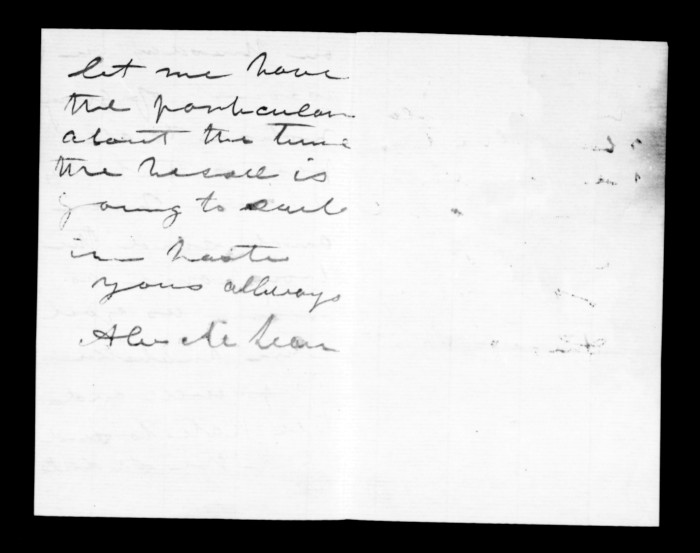 let me have
the particulars
about the time
the vessell is
going to sail
in haste
yours allways
Alex McLean